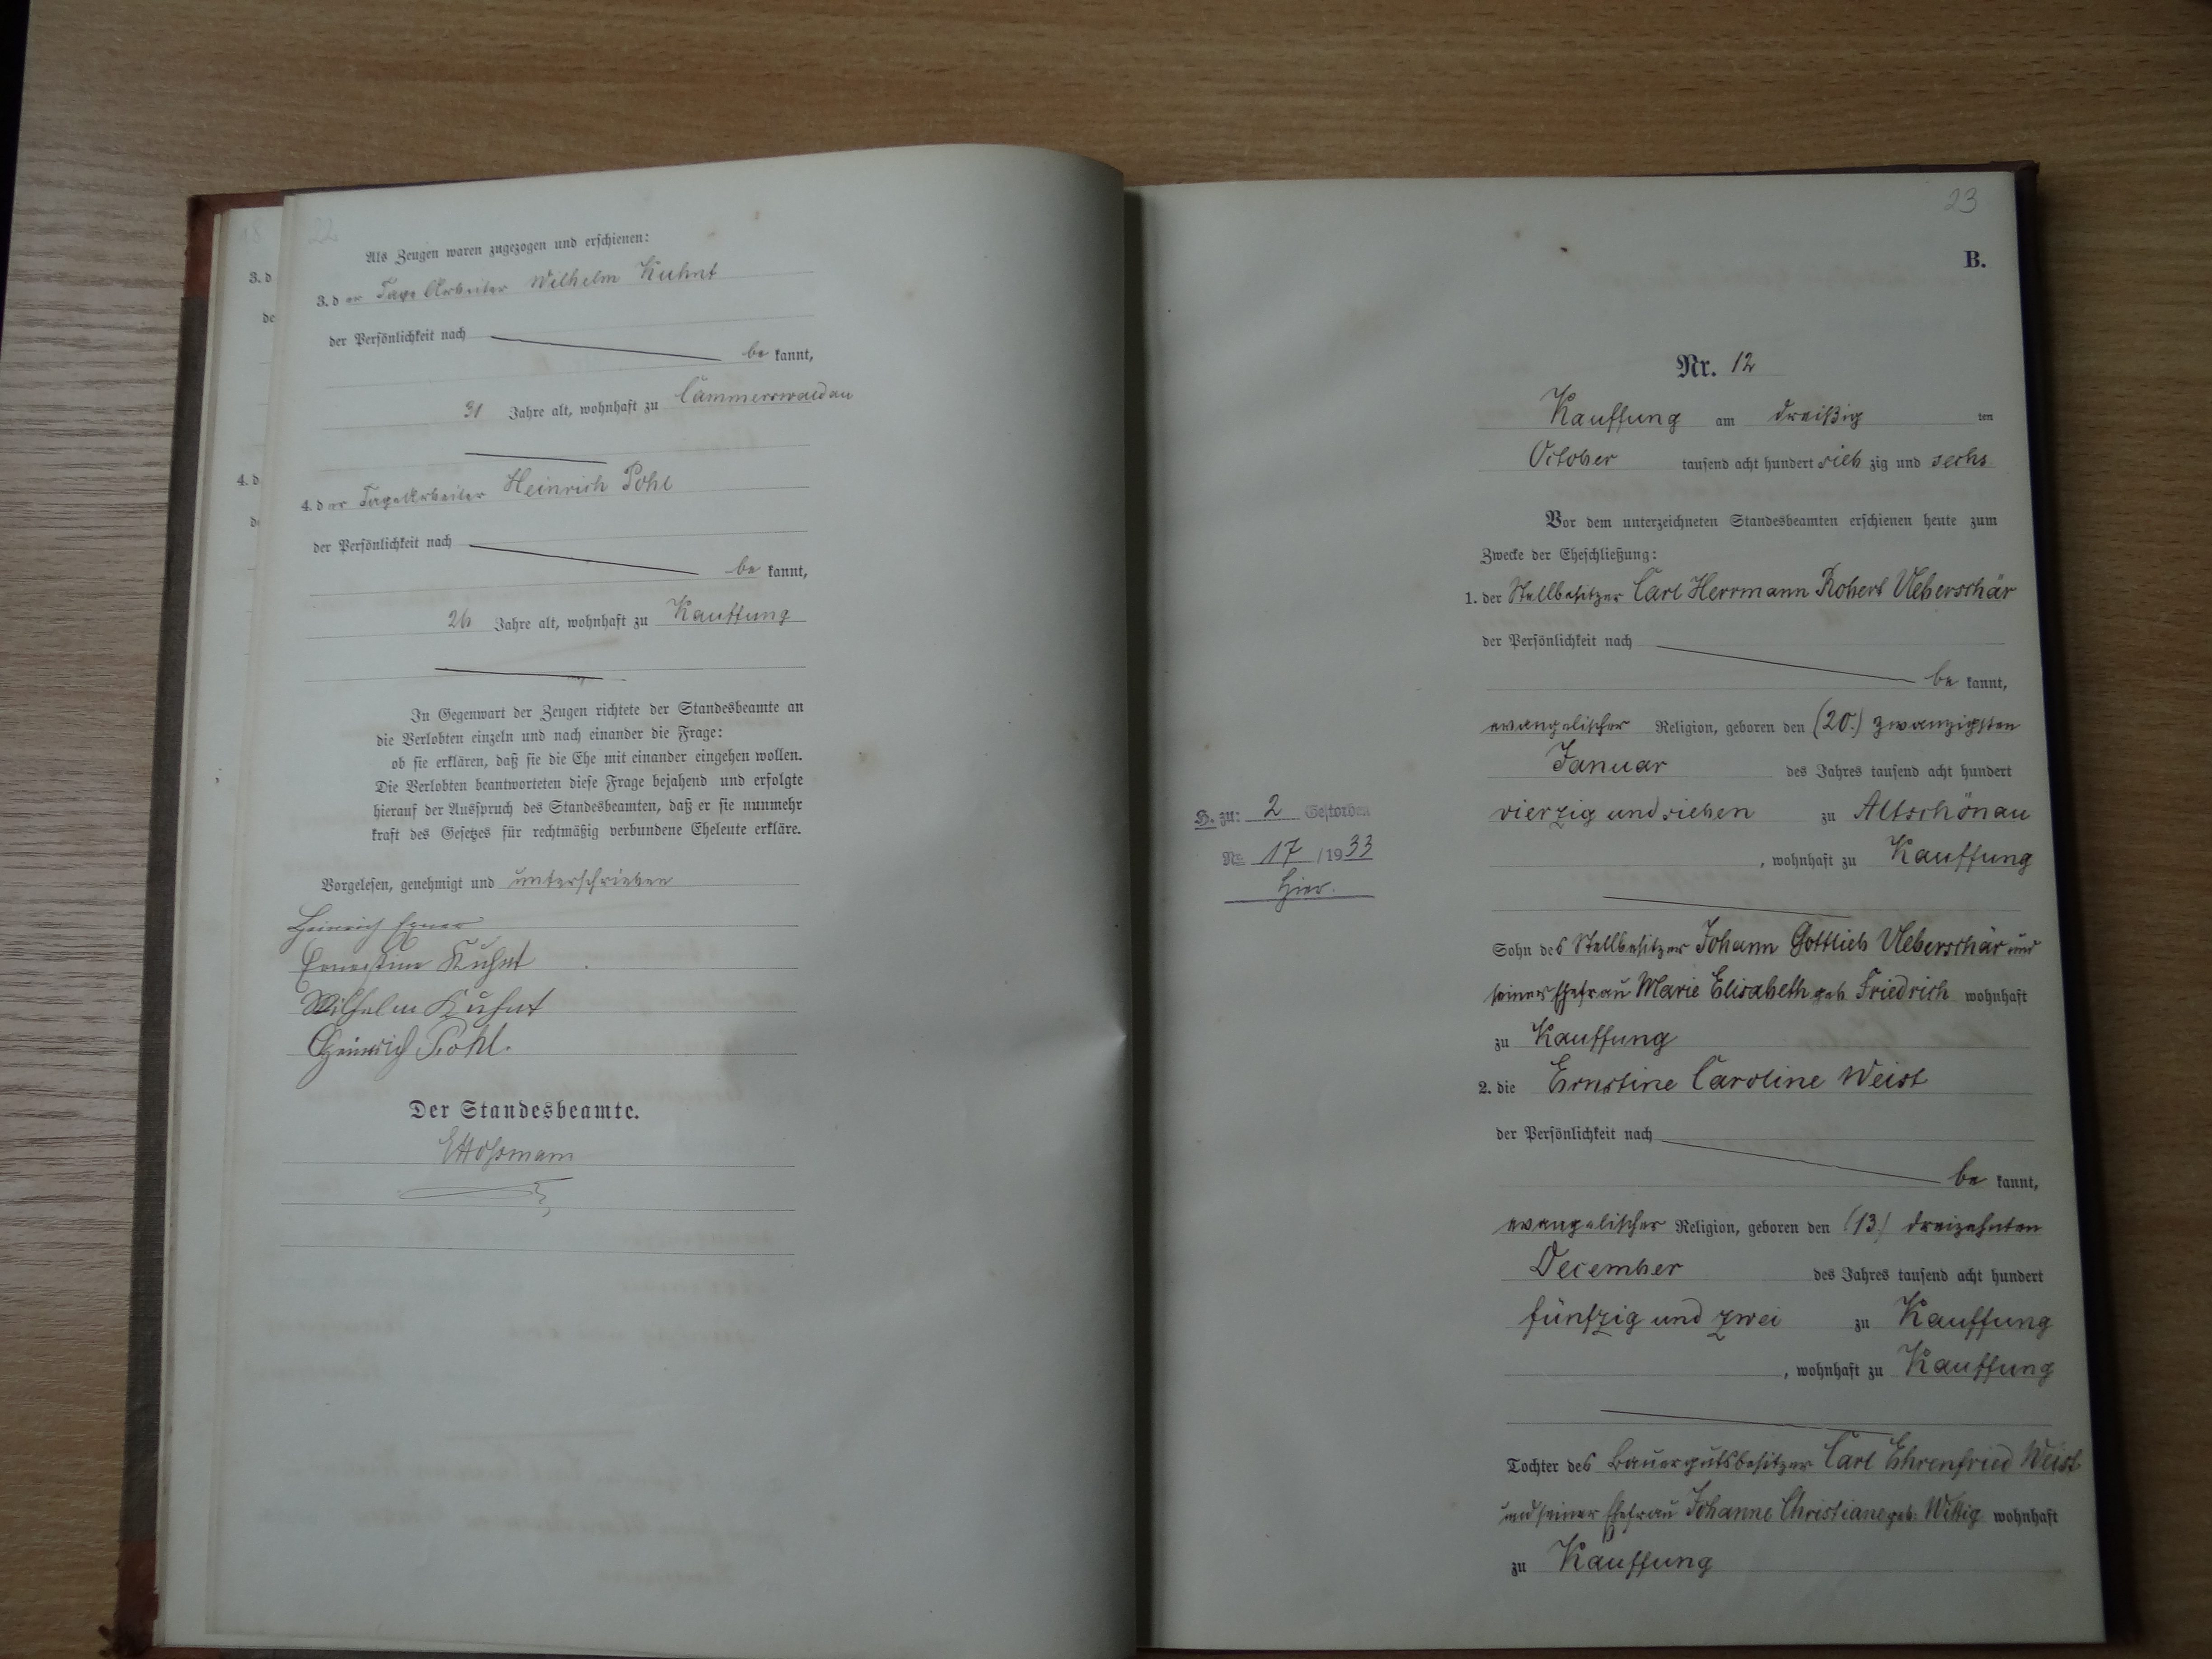 22
Als Zeugen waren zugezogen und erschienen:
3. der Tage Arbeiter Wilhelm Kuhnt
der Persönlichkeit nach
be kannt,
31 Jahre alt, wohnhaft zu Cammerswaldau
4. der Tagearbeiter Heinrich Pohl
der Persönlichkeit nach
be kannt,
26 Jahre alt, wohnhaft zu Kauffung
In Gegenwart der Zeugen richtete der Standesbeamte an
die Verlobten einzeln und nach einander die Frage:
ob sie erklären, daß sie die Ehe mit einander eingehen wollen.
Die Verlobten beantworteten diese Frage bejahend und erfolgte
hierauf der Ausspruch des Standesbeamten, daß er sie nunmehr
kraft des Gesetzes für rechtmäßig verbundene Eheleute erkläre.
Vorgelesen, genehmigt und unterschrieben
Heinrich
Ernestine Kuhnt
Wilhelm Kuhnt
Heinrich Pohl.
Der Standesbeamte.
18
3. d
de
4. d
de
23
B.
Nr. 12
Kauffung am dreißig ten
October tausend acht hundert sieb zig und sechs
Vor dem unterzeichneten Standesbeamten erschienen heute zum
Zwecke der Eheschließung:
1. der Stellbesitzer Carl Herrmann Robert Ueberschär
der Persönlichkeit nach
be kannt,
evangelischer Religion, geboren den (20.) zwanzigsten
Januar des Jahres tausend acht hundert
vierzig und sieben zu Altschönau
, wohnhaft zu Kauffung
Sohn des Stellbesitzer Johann Gottlieb Ueberschär und
seiner Ehefrau Marie Elisabeth geb Friedrich wohnhaft
zu Kauffung
2. die Ernstine Caroline Weist
der Persönlichkeit nach
be kannt,
evangelischer Religion, geboren den (13.) dreizehnten
December des Jahres tausend acht hundert
fünfzig und zwei zu Kauffung
, wohnhaft zu Kauffung
Tochter des Bauergutsbesitzer Carl Ehrenfried Weist
und seiner Ehefrau Johanne Christiane geb: Wittig wohnhaft
zu Kauffung
H. zu: 2 Gestorben
No 17 /1933
hier.